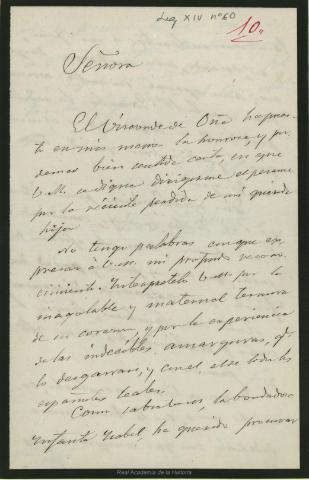 Leg XIV nº 60
10,,
Señora
El Vizconde de Oña ha pues-
to en mis manos la honrosa, y por
demas bien sentida carta, en que
V.M. se digna dirigirme el pesame
por la reciente perdida de mi querido
hijo
No tengo palabras con que ex-
presar à V.M. mi profundo recono-
cimiento. Interpretelo V.M. por la
inagotable y maternal ternura
de su corazon, y por la experiencia
de las indecibles amarguras, qe.
lo desgarran, y con el, el de todos los
españoles leales.
Como sabra la bondadosa
Infanta Isabel, ha querido procurar
Real Academia de la Historia